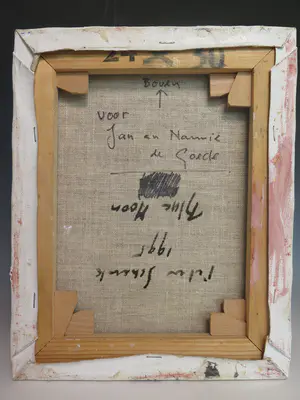 24 X 30
Boven
voor
Jan en Nannie
de Goede
Blue Moon
1995
Peter Schenk